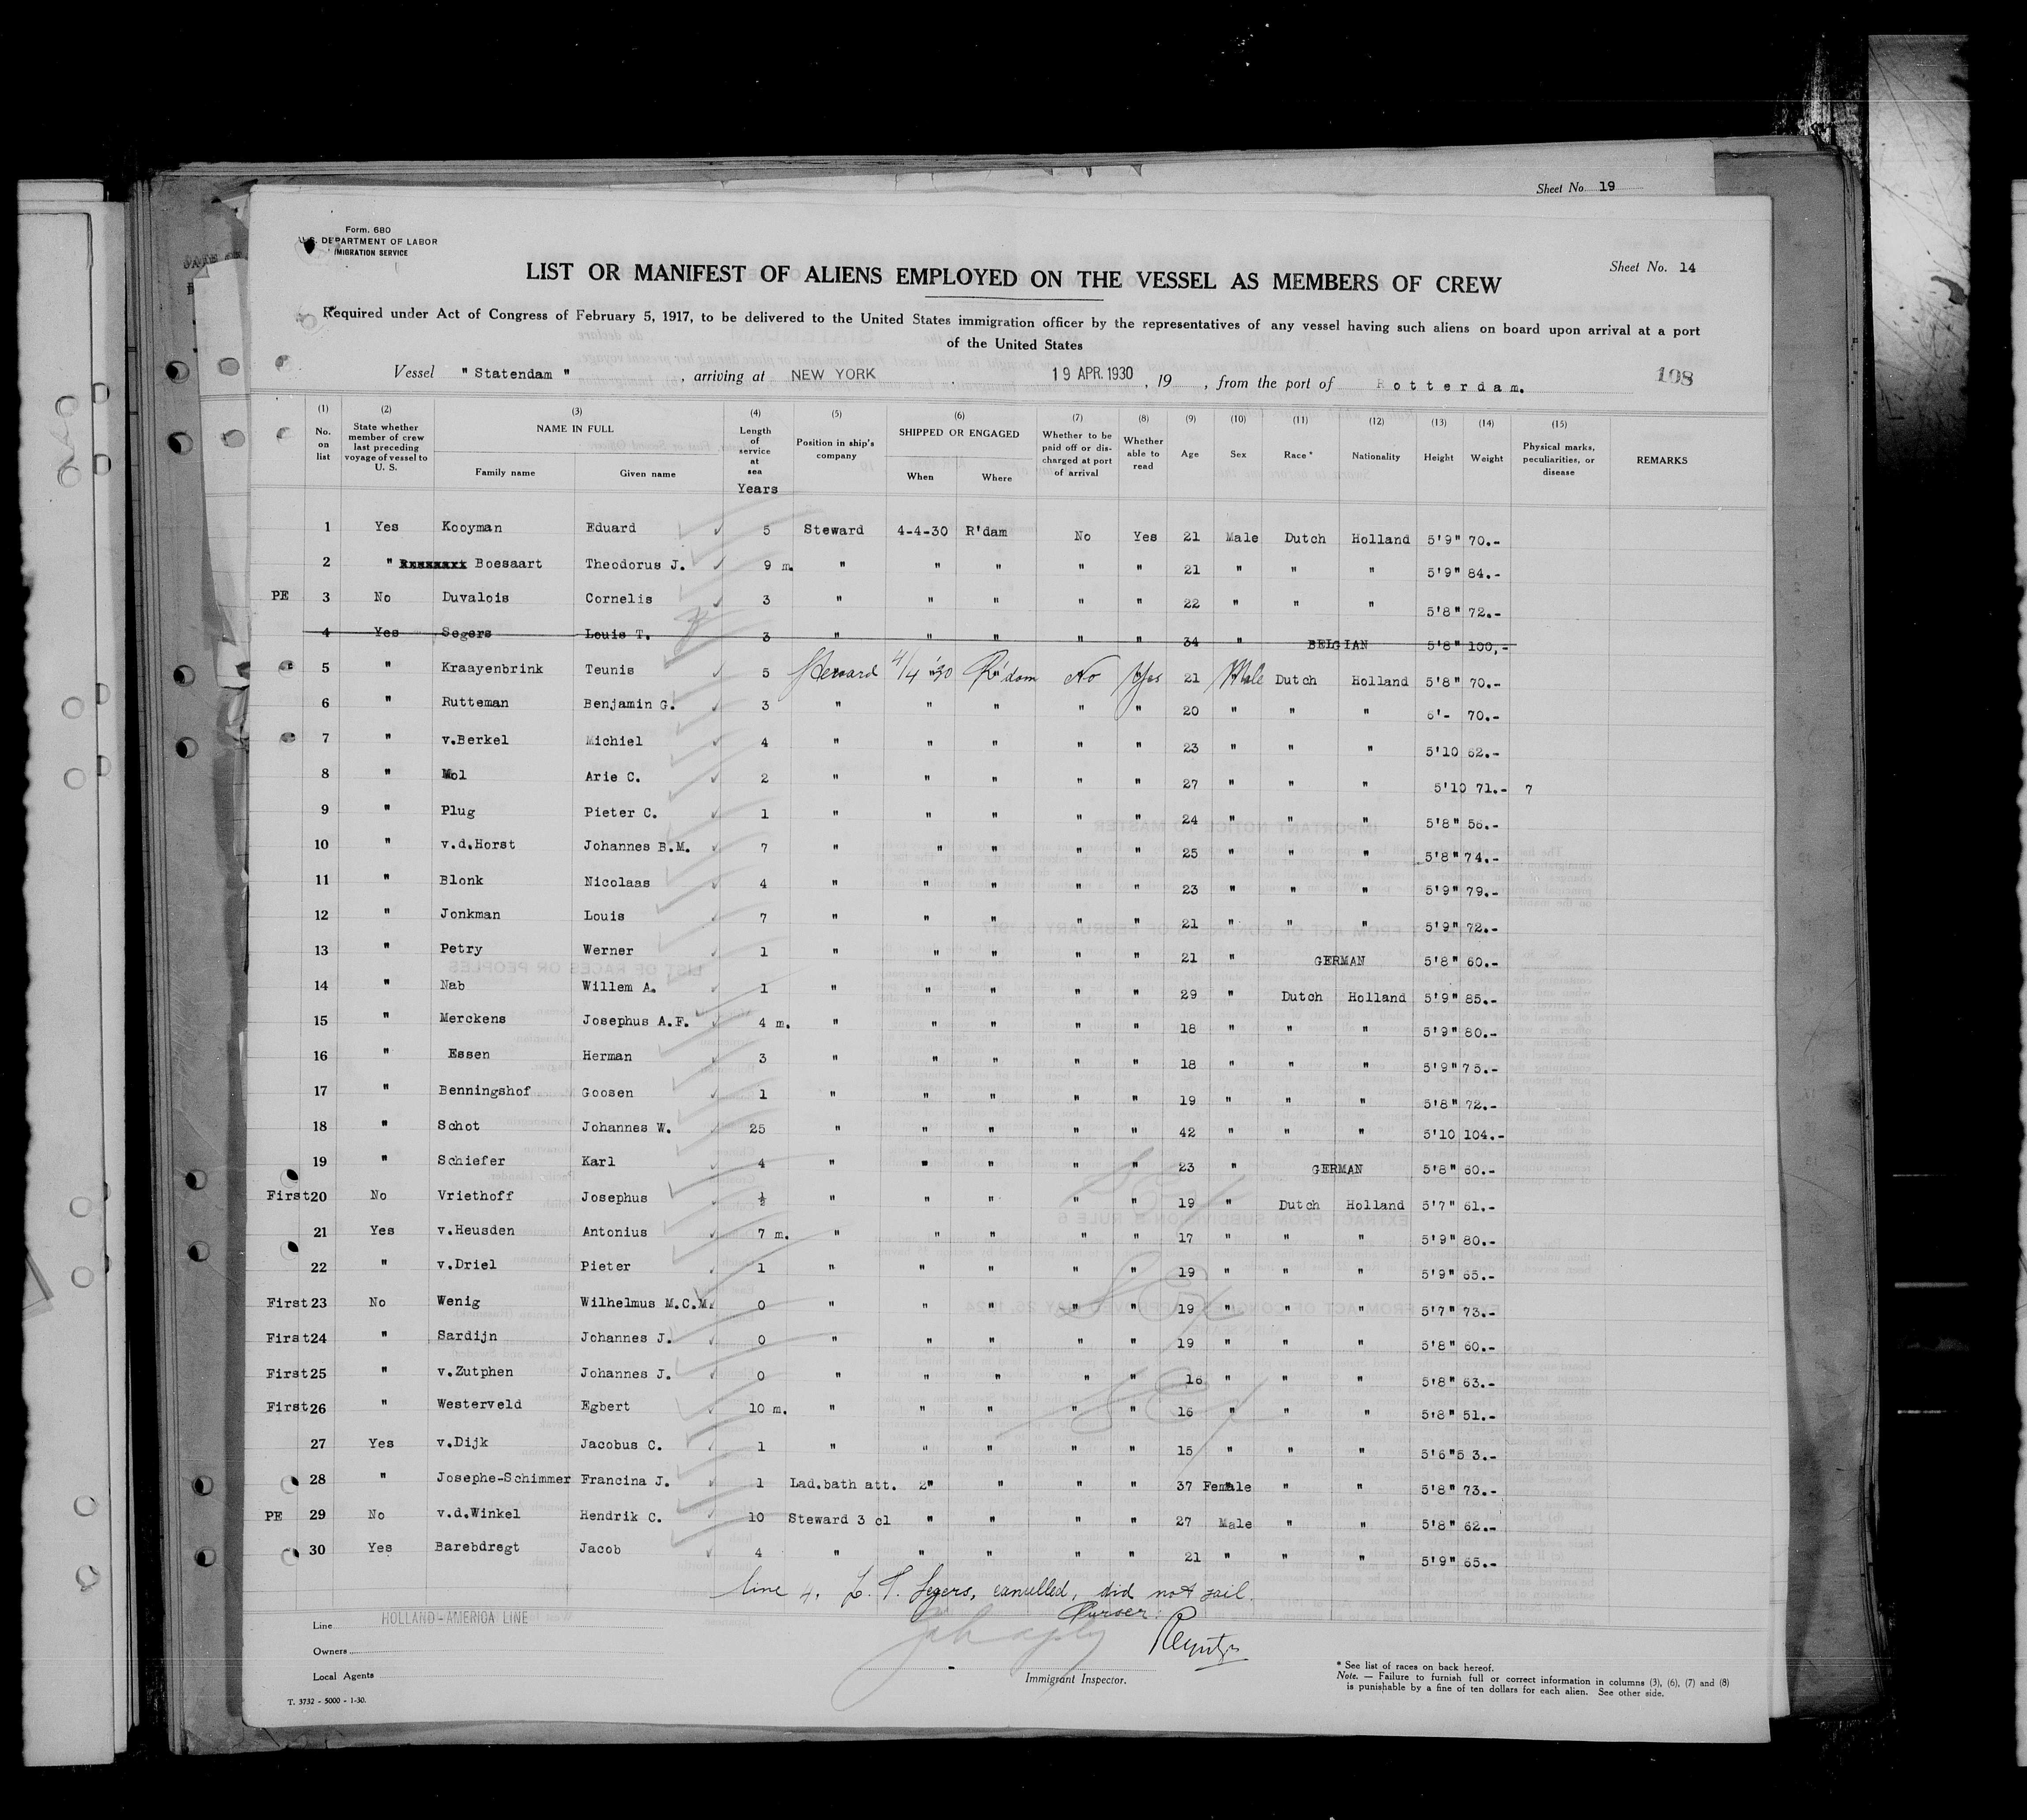 Sheet No. 19
Form. 680
U.S. DEPARTMENT OF LABOR
IMMIGRATION SERVICE
Sheet No. 14
LIST OR MANIFEST OF ALIENS EMPLOYED ON THE VESSEL AS MEMBERS OF CREW
Required under Act of Congress of February 5, 1917, to be delivered to the United States immigration officer by the representatives of any vessel having such aliens on board upon arrival at a port
of the United States
Vessel "Statendam", arriving at NEW YORK 19 APR. 1930, 19 , from the port of Rotterdam. 108
(1) (2) (3) (4) (5) (6) (7) (8) (9) (10) (11) (12) (13) (14) (15)
No. on list State whether member of crew last preceding voyage of vessel to U. S. NAME IN FULL Family name Given name Length of service at sea Years Position in ship's company SHIPPED OR ENGAGED When Where Whether to be paid off or discharged at port of arrival Whether able to read Age Sex Race* Nationality Height Weight Physical marks, peculiarities, or disease REMARKS
1 Yes Kooyman Eduard 5 Steward 4-4-30 R'dam No Yes 21 Male Dutch Holland 5'9" 70.-
2 " Boesaart Theodorus J. 9 m. " " " " " 21 " " " 5'9" 84.-
PE 3 No Duvalois Cornelis 3 " " " " " 22 " " " 5'8" 72.-
4 Yes Segers Louis T. 3 " " " " " 34 " BELGIAN 5'8" 100,-
5 " Kraayenbrink Teunis 5 Steward 4/4 '30 R'dam No Yes 21 Male Dutch Holland 5'8" 70.-
6 " Rutteman Benjamin G. 3 " " " " " 20 " " " 6'- 70.-
7 " v.Berkel Michiel 4 " " " " " 23 " " " 5'10 62.-
8 " Mol Arie C. 2 " " " " " 27 " " " 5'10 71.- 7
9 " Plug Pieter C. 1 " " " " " 24 " " " 5'8" 56.-
10 " v.d.Horst Johannes B.M. 7 " " " " " 25 " " " 5'8" 74.-
11 " Blonk Nicolaas 4 " " " " " 23 " " " 5'9" 79.-
12 " Jonkman Louis 7 " " " " " 21 " " " 5'9" 72.-
13 " Petry Werner 1 " " " " " 21 " GERMAN 5'8" 60.-
14 " Nab Willem A. 1 " " " " " 29 " Dutch Holland 5'9" 85.-
15 " Merckens Josephus A.F. 4 m. " " " " " 18 " " " 5'9" 80.-
16 " Essen Herman 3 " " " " " 18 " " " 5'9" 75.-
17 " Benningshof Goosen 1 " " " " " 19 " " " 5'8" 72.-
18 " Schot Johannes W. 25 " " " " " 42 " " " 5'10 104.-
19 " Schiefer Karl 4 " " " " " 23 " GERMAN 5'8" 60.-
First 20 No Vriethoff Josephus ½ " " " " " 19 " Dutch Holland 5'7" 61.-
21 Yes v.Heusden Antonius 7 m. " " " " " 17 " " " 5'9" 80.-
22 " v.Driel Pieter 1 " " " " " 19 " " " 5'9" 65.-
First 23 No Wenig Wilhelmus M.C.M. 0 " " " " " 19 " " " 5'7" 73.-
First 24 " Sardijn Johannes J. 0 " " " " " 19 " " " 5'8" 60.-
First 25 " v.Zutphen Johannes J. 0 " " " " " 16 " " " 5'8" 63.-
First 26 " Westerveld Egbert 10 m. " " " " " 16 " " " 5'8" 51.-
27 Yes v.Dijk Jacobus C. 1 " " " " " 15 " " " 5'6" 53.-
28 " Josephe-Schimmer Francina J. 1 Lad.bath att. 2" " " " 37 Female " " 5'8" 73.-
PE 29 No v.d.Winkel Hendrik C. 10 Steward 3 cl " " " " 27 Male " " 5'8" 62.-
30 Yes Barebdregt Jacob 4 " " " " " 21 " " " 5'9" 65.-
line 4. L. T. Segers, cancelled, did not sail.
Purser:
Line HOLLAND-AMERICA LINE
Owners
Local Agents
Immigrant Inspector.
* See list of races on back hereof.
Note. — Failure to furnish full or correct information in columns (3), (6), (7) and (8)
is punishable by a fine of ten dollars for each alien. See other side.
T. 3732 - 5000 - 1-30.